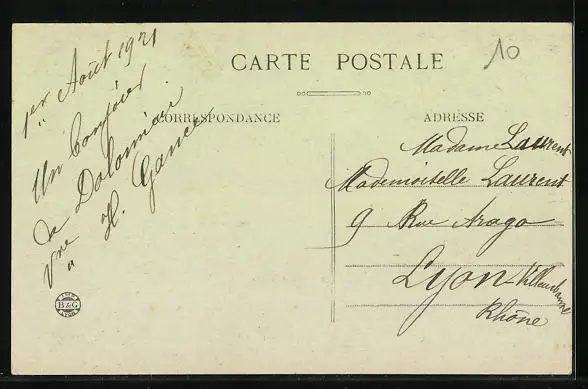 10
CARTE POSTALE
CORRESPONDANCE
ADRESSE
1er Août 1921
Un bonjour
de Dolomieu
H. Gance
Madame Laurent
Mademoiselle Laurent
9 Rue Arago
Lyon-Villeurbanne
Rhône
B&G
LYON